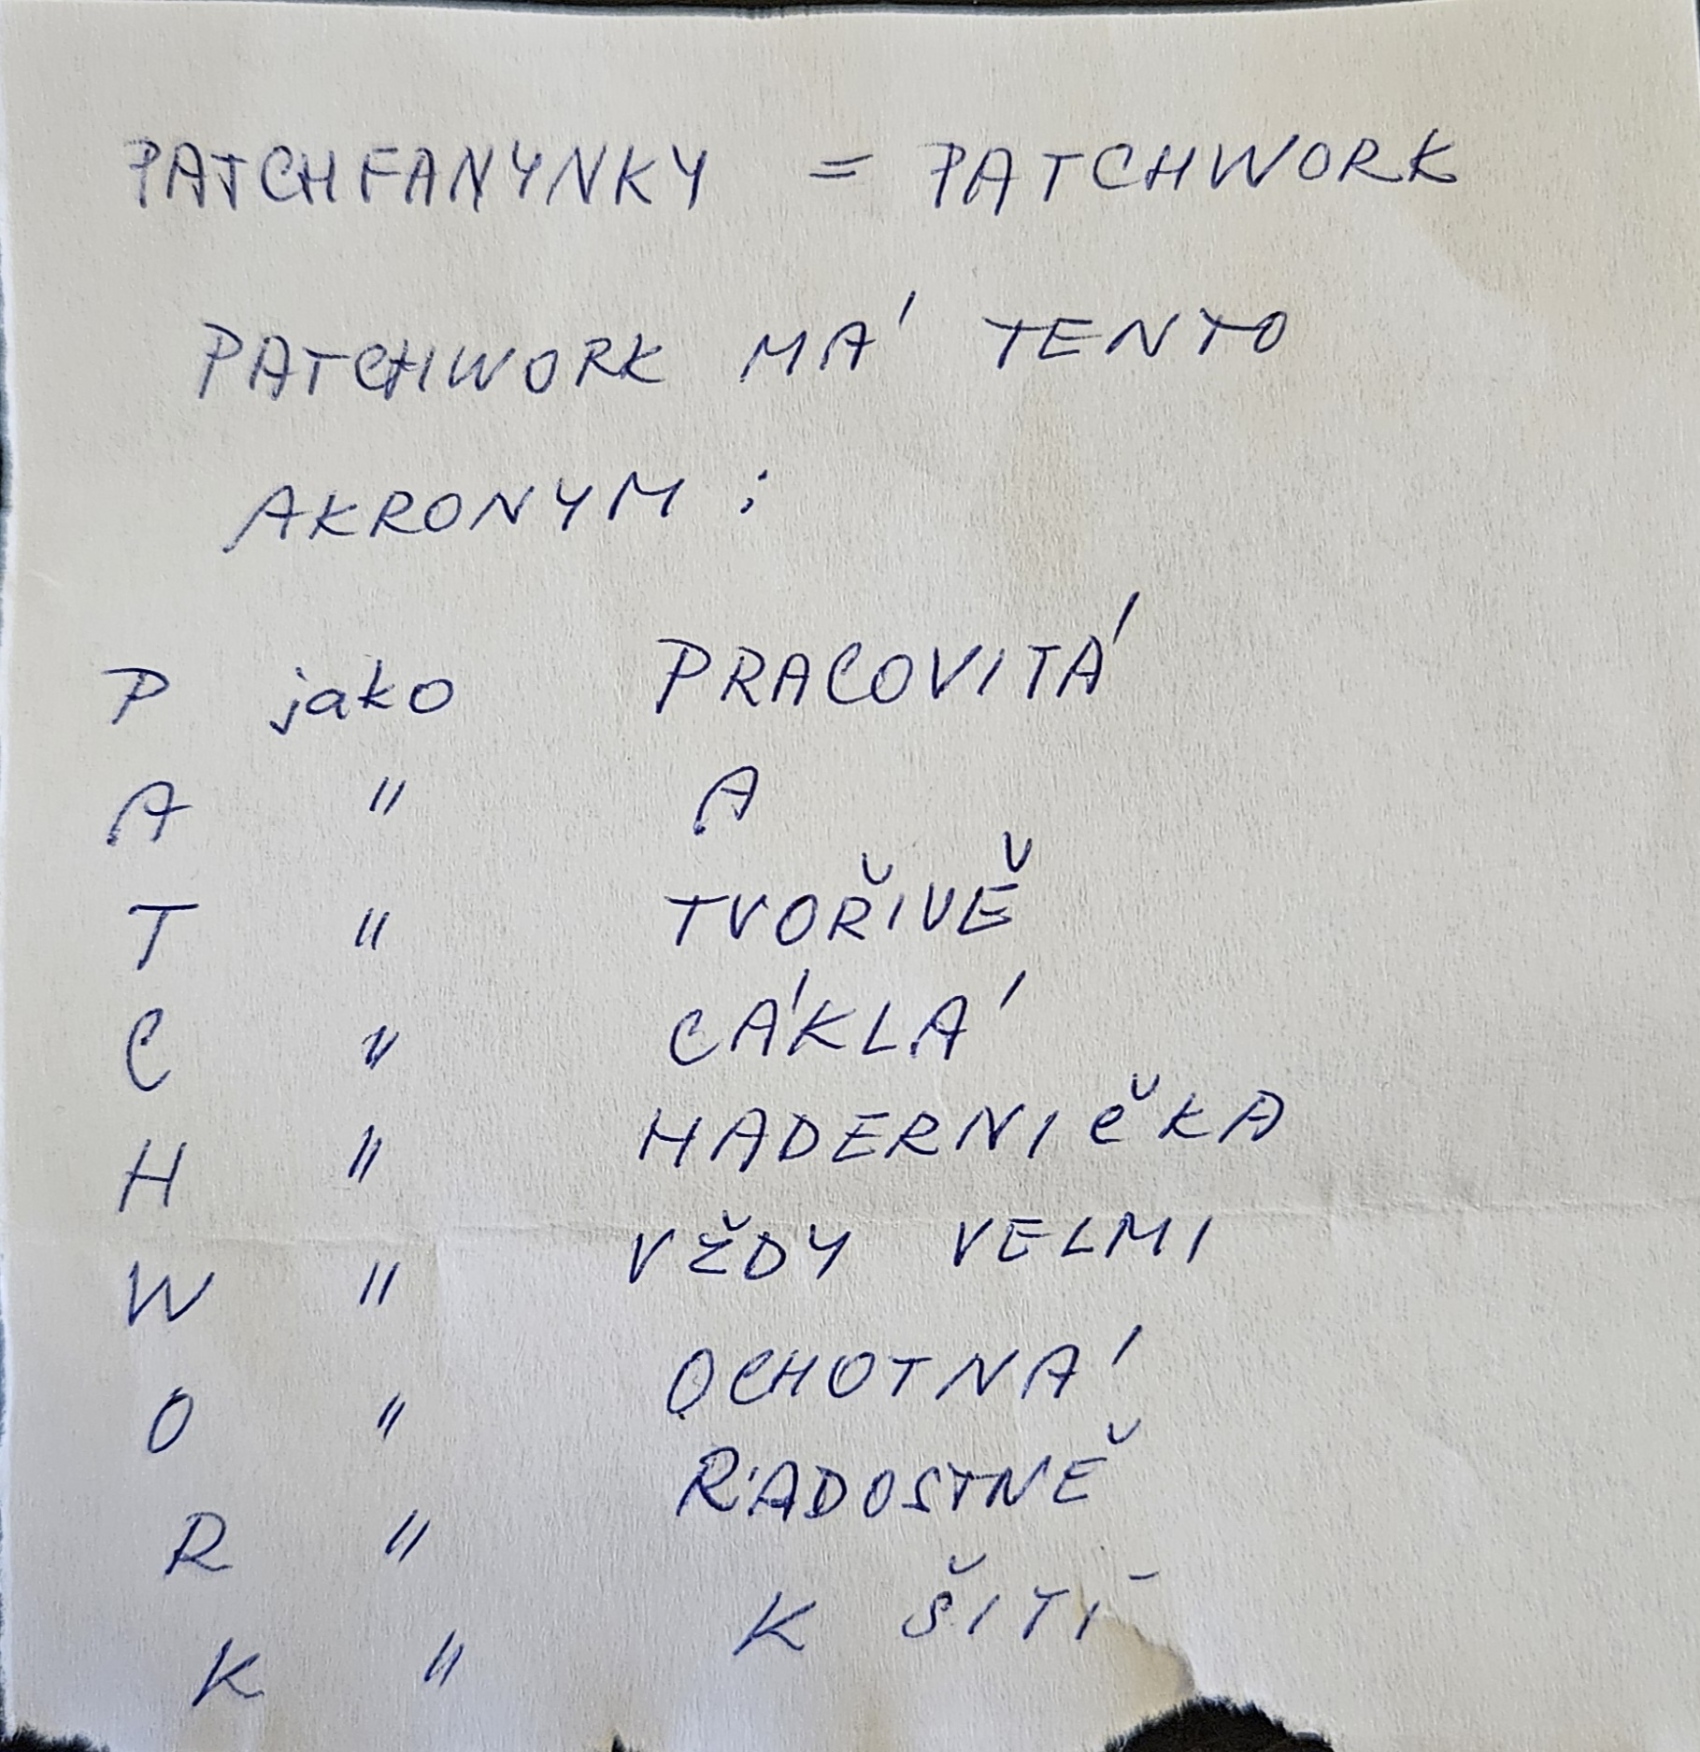 PATCHFANYNKY = PATCHWORK
PATCHWORK MÁ TENTO
AKRONYM :
P jako PRACOVITÁ
A " A
T " TVOŘIVĚ
C " CÁKLÁ
H " HADERNIČKA
W " VŽDY VELMI
O " OCHOTNÁ
R " RADOSTNĚ
K " K ŠITÍ